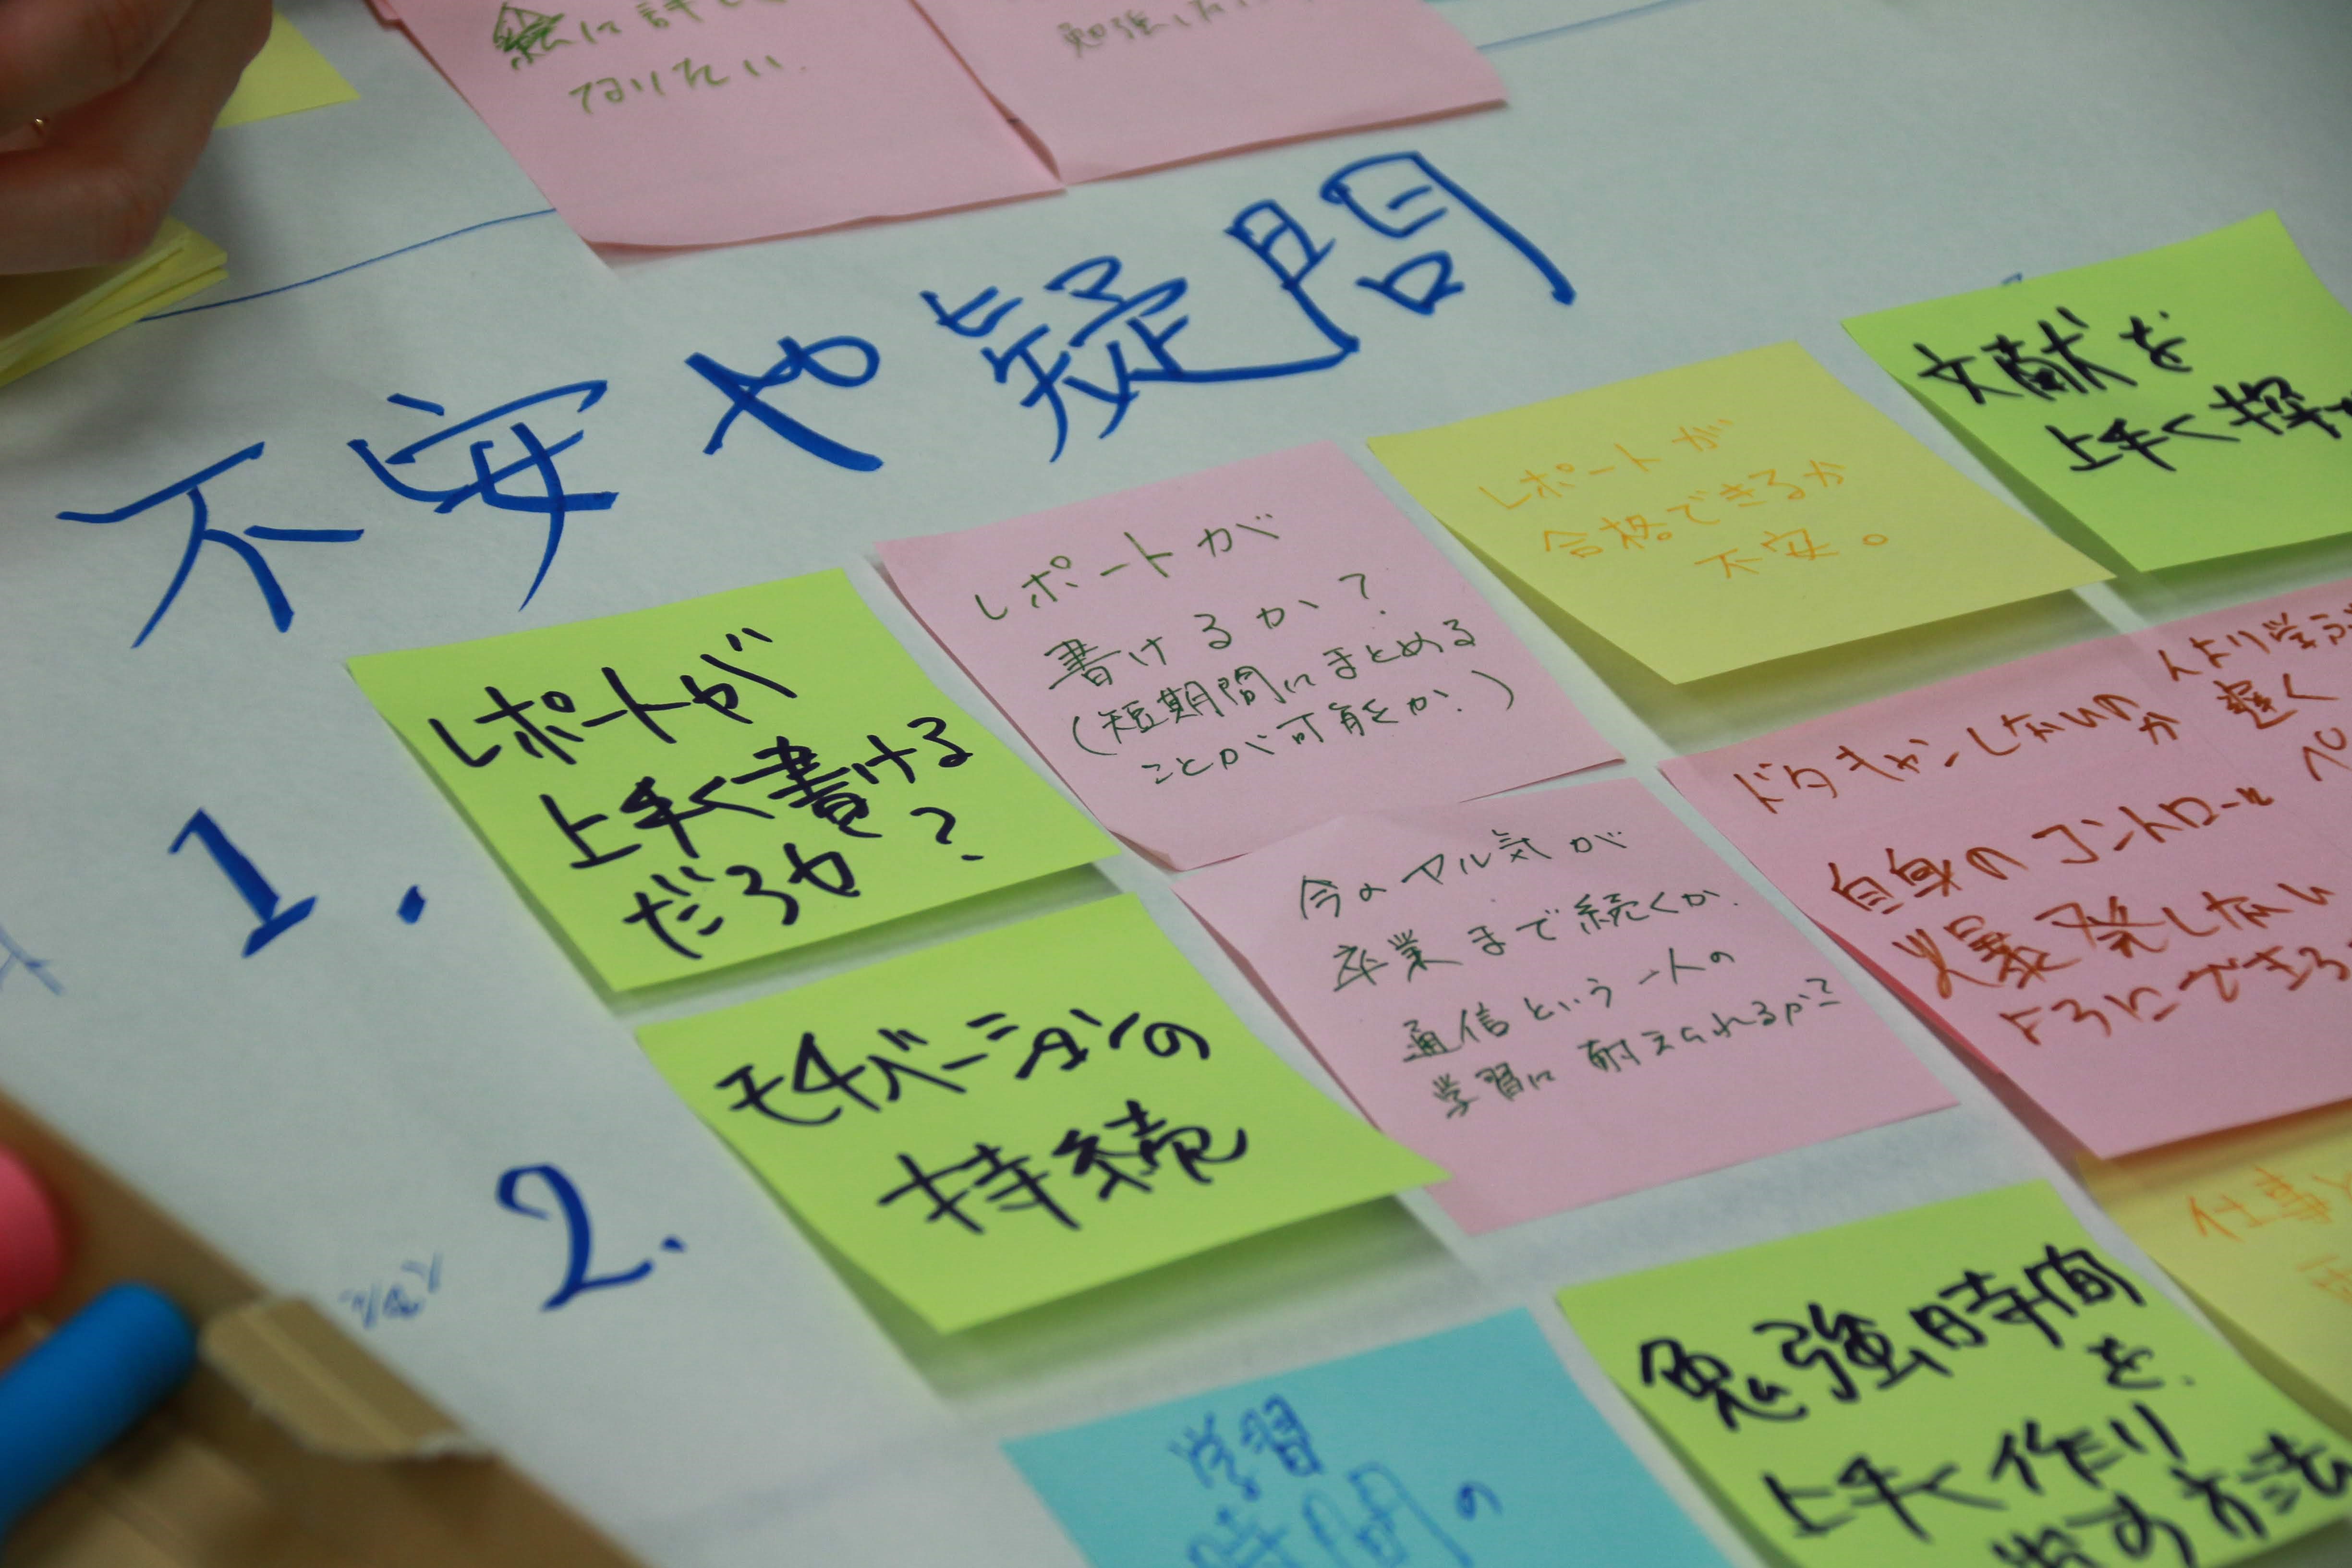 絵に詳しく
なりたい.
勉強した
不安や疑問
1.
レポートが
上手く書ける
だろか?
レポートが
書けるか、?
(短期間にまとめる
ことが可能なか?)
レポートが
合格できるか
不安。
文献を
上手く探
2.
モチバーションの
持続
今のヤル気が
卒業まで続くか.
通信という一人の
学習に耐えられるか?
ドタキャンしないか
自身のコントロール
爆発しない
ようにできる
人より学ぶ
遅く
仕事
学習
時間の
勉強時間
を.
上手く作り
出す方法